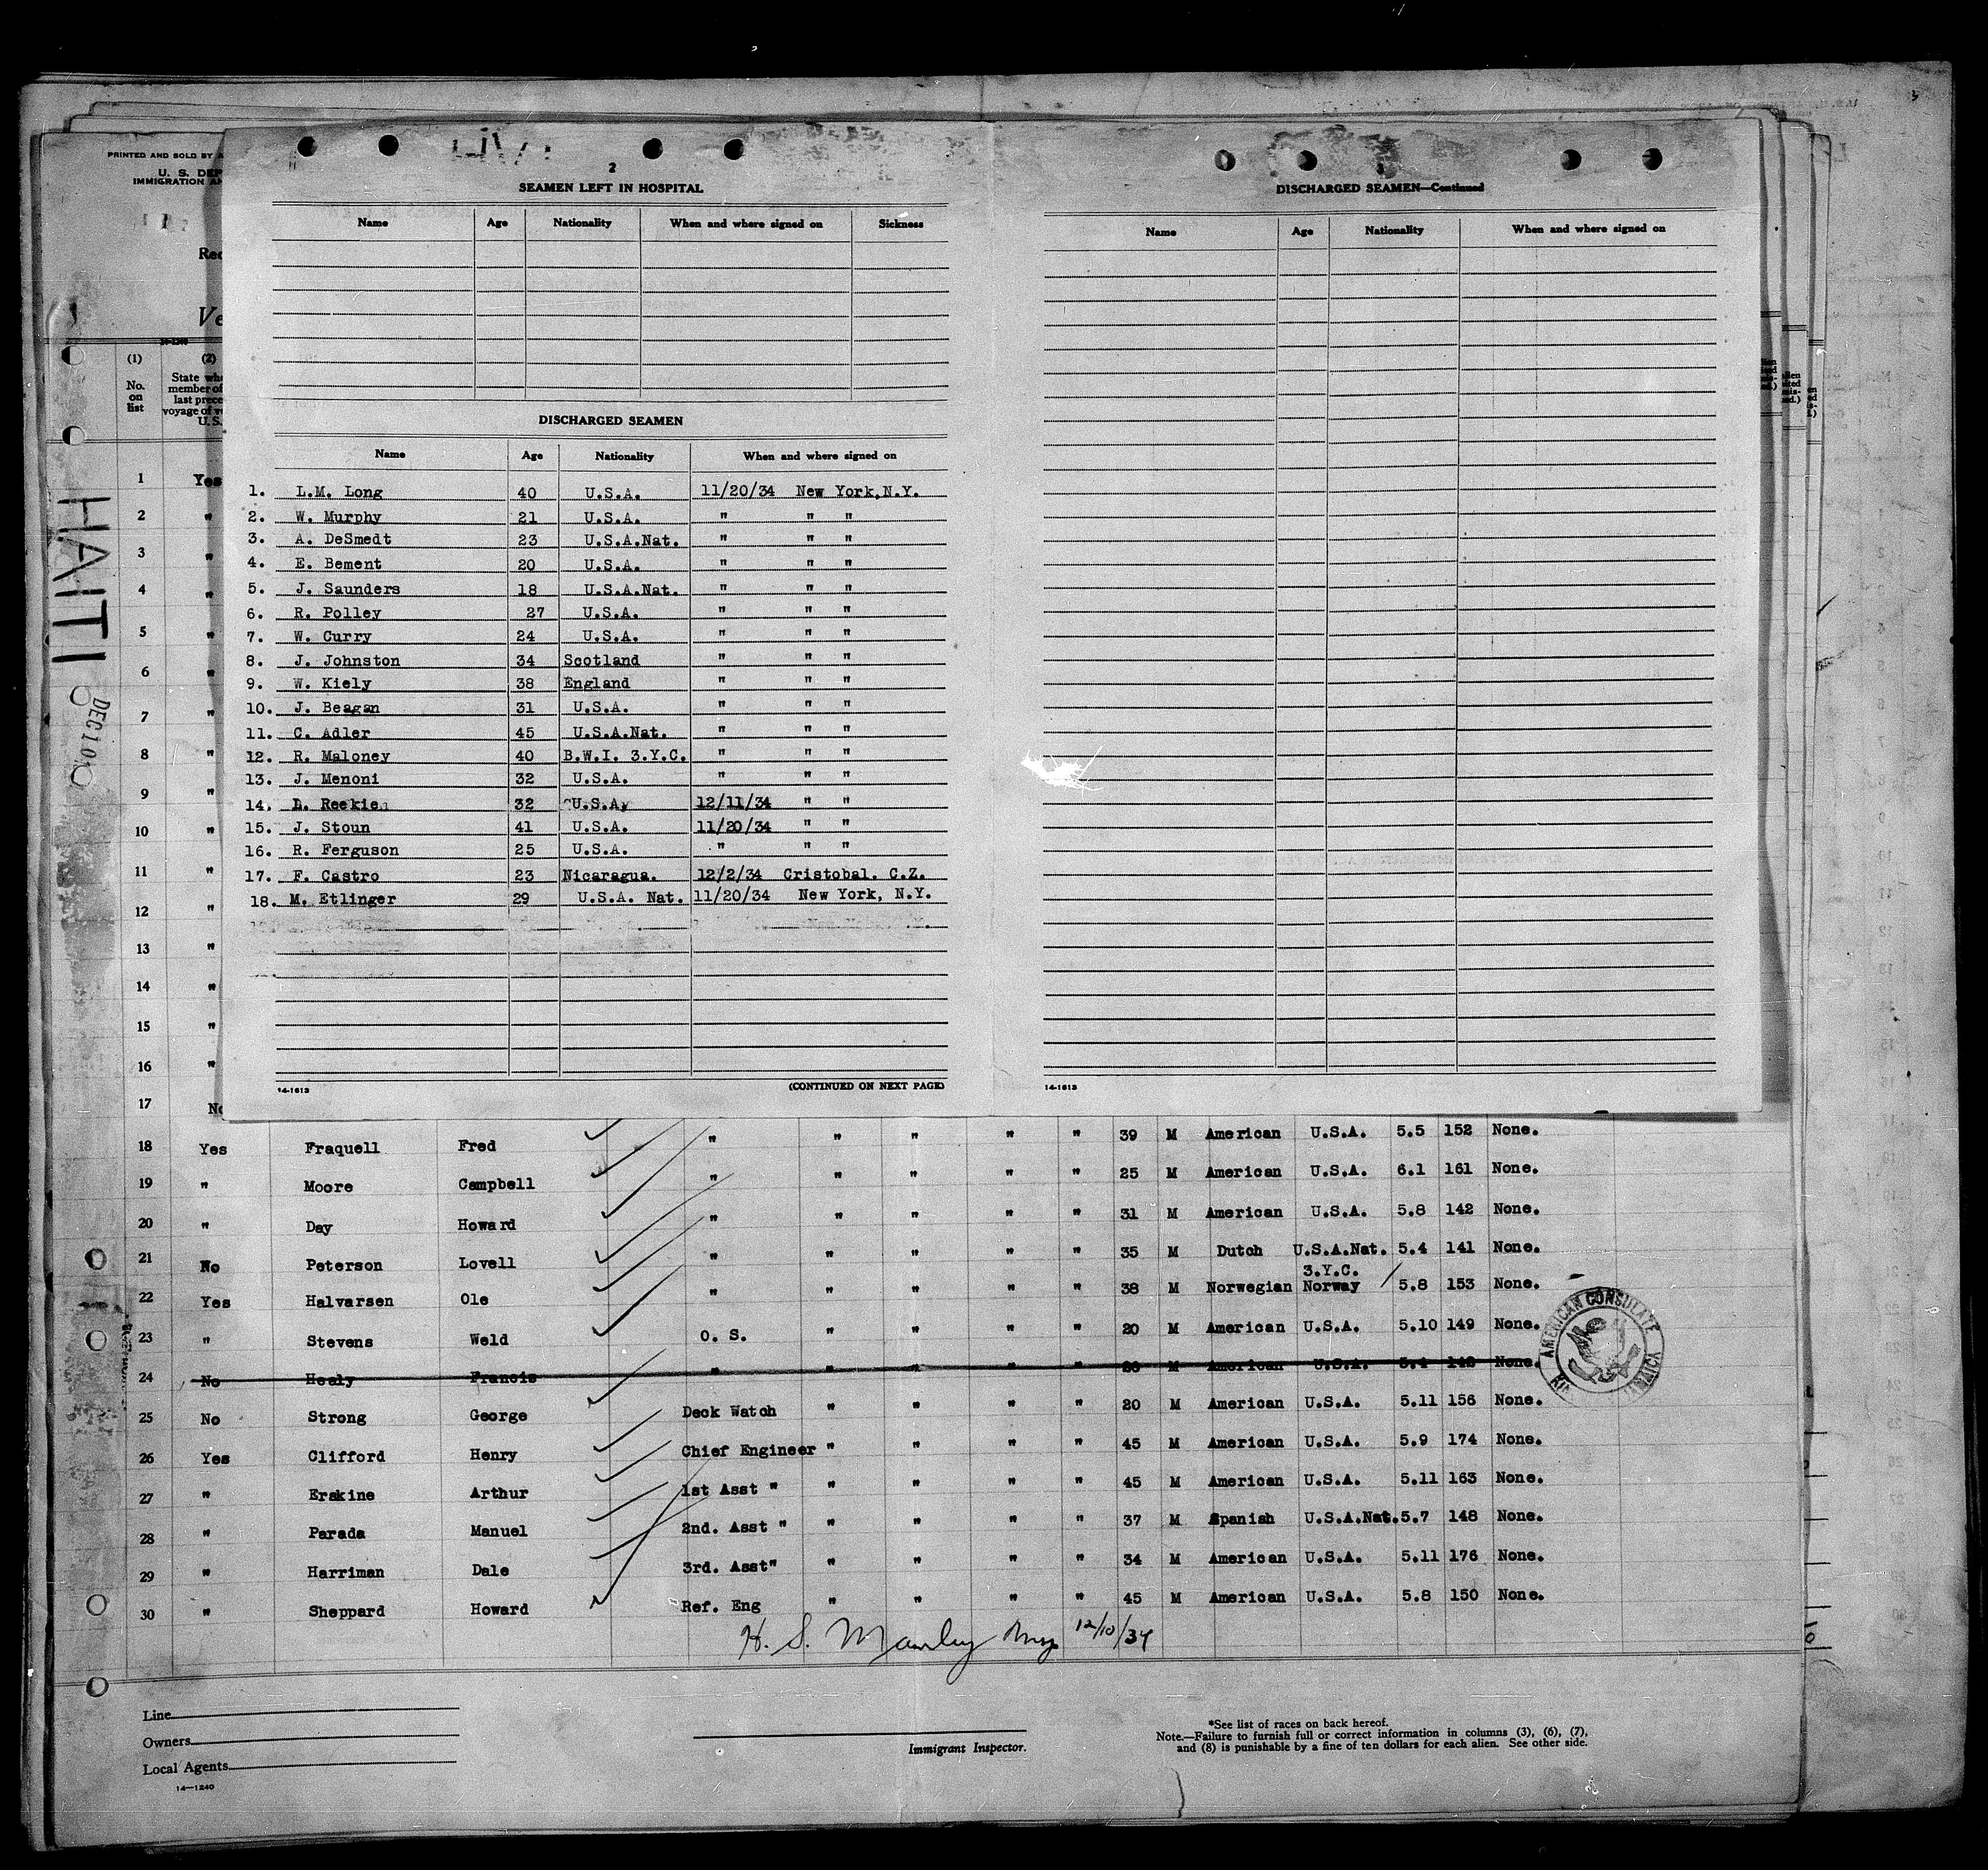 PRINTED AND SOLD BY
U. S. DEP
IMMIGRATION AN
Rec
Ve
(1) (2)
No. on list
State whe
member of
last prece
voyage of ve
U.S.
HAITI
DEC 10
2
SEAMEN LEFT IN HOSPITAL
Name Age Nationality When and where signed on Sickness
DISCHARGED SEAMEN
Name Age Nationality When and where signed on
1. L.M. Long 40 U.S.A. 11/20/34 New York,N.Y.
2. W. Murphy 21 U.S.A. " " "
3. A. DeSmedt 23 U.S.A.Nat. " " "
4. E. Bement 20 U.S.A. " " "
5. J. Saunders 18 U.S.A.Nat. " " "
6. R. Polley 27 U.S.A. " " "
7. W. Curry 24 U.S.A. " " "
8. J. Johnston 34 Scotland " " "
9. W. Kiely 38 England " " "
10. J. Beagan 31 U.S.A. " " "
11. C. Adler 45 U.S.A.Nat. " " "
12. R. Maloney 40 B.W.I. 3.Y.C. " " "
13. J. Menoni 32 U.S.A. " " "
14. L. Reekie 32 U.S.A. 12/11/34 " "
15. J. Stoun 41 U.S.A. 11/20/34 " "
16. R. Ferguson 25 U.S.A. " " "
17. F. Castro 23 Nicaragua. 12/2/34 Cristobal. C.Z.
18. M. Etlinger 29 U.S.A. Nat. 11/20/34 New York, N.Y.
14-1613 (CONTINUED ON NEXT PAGE)
DISCHARGED SEAMEN—Continued
Name Age Nationality When and where signed on
14-1613
1 Yes
2 "
3 "
4 "
5 "
6 "
7 "
8 "
9 "
10 "
11 "
12 "
13 "
14 "
15 "
16 "
17 No
18 Yes Fraquell Fred " " " " " 39 M American U.S.A. 5.5 152 None.
19 " Moore Campbell " " " " " 25 M American U.S.A. 6.1 161 None.
20 " Day Howard " " " " " 31 M American U.S.A. 5.8 142 None.
21 No Peterson Lovell " " " " " 35 M Dutch U.S.A.Nat. 5.4 141 None.
3.Y.C.
22 Yes Halvarsen Ole " " " " " 38 M Norwegian Norway 5.8 153 None.
23 " Stevens Weld O. S. " " " " 20 M American U.S.A. 5.10 149 None.
24 No Healy Francis " " " " " M American U.S.A. 5.4 None.
25 No Strong George Deck Watch " " " " 20 M American U.S.A. 5.11 156 None.
26 Yes Clifford Henry Chief Engineer " " " " 45 M American U.S.A. 5.9 174 None.
27 " Erskine Arthur 1st Asst " " " " " 45 M American U.S.A. 5.11 163 None.
28 " Parada Manuel 2nd. Asst " " " " " 37 M Spanish U.S.A.Nat. 5.7 148 None.
29 " Harriman Dale 3rd. Asst" " " " " 34 M American U.S.A. 5.11 176 None.
30 " Sheppard Howard Ref. Eng " " " " 45 M American U.S.A. 5.8 150 None.
AMERICAN CONSULATE
JAMAICA
H. S. Manley 12/10/34
Line
Owners
Local Agents
14—1240
Immigrant Inspector.
*See list of races on back hereof.
Note.—Failure to furnish full or correct information in columns (3), (6), (7),
and (8) is punishable by a fine of ten dollars for each alien. See other side.